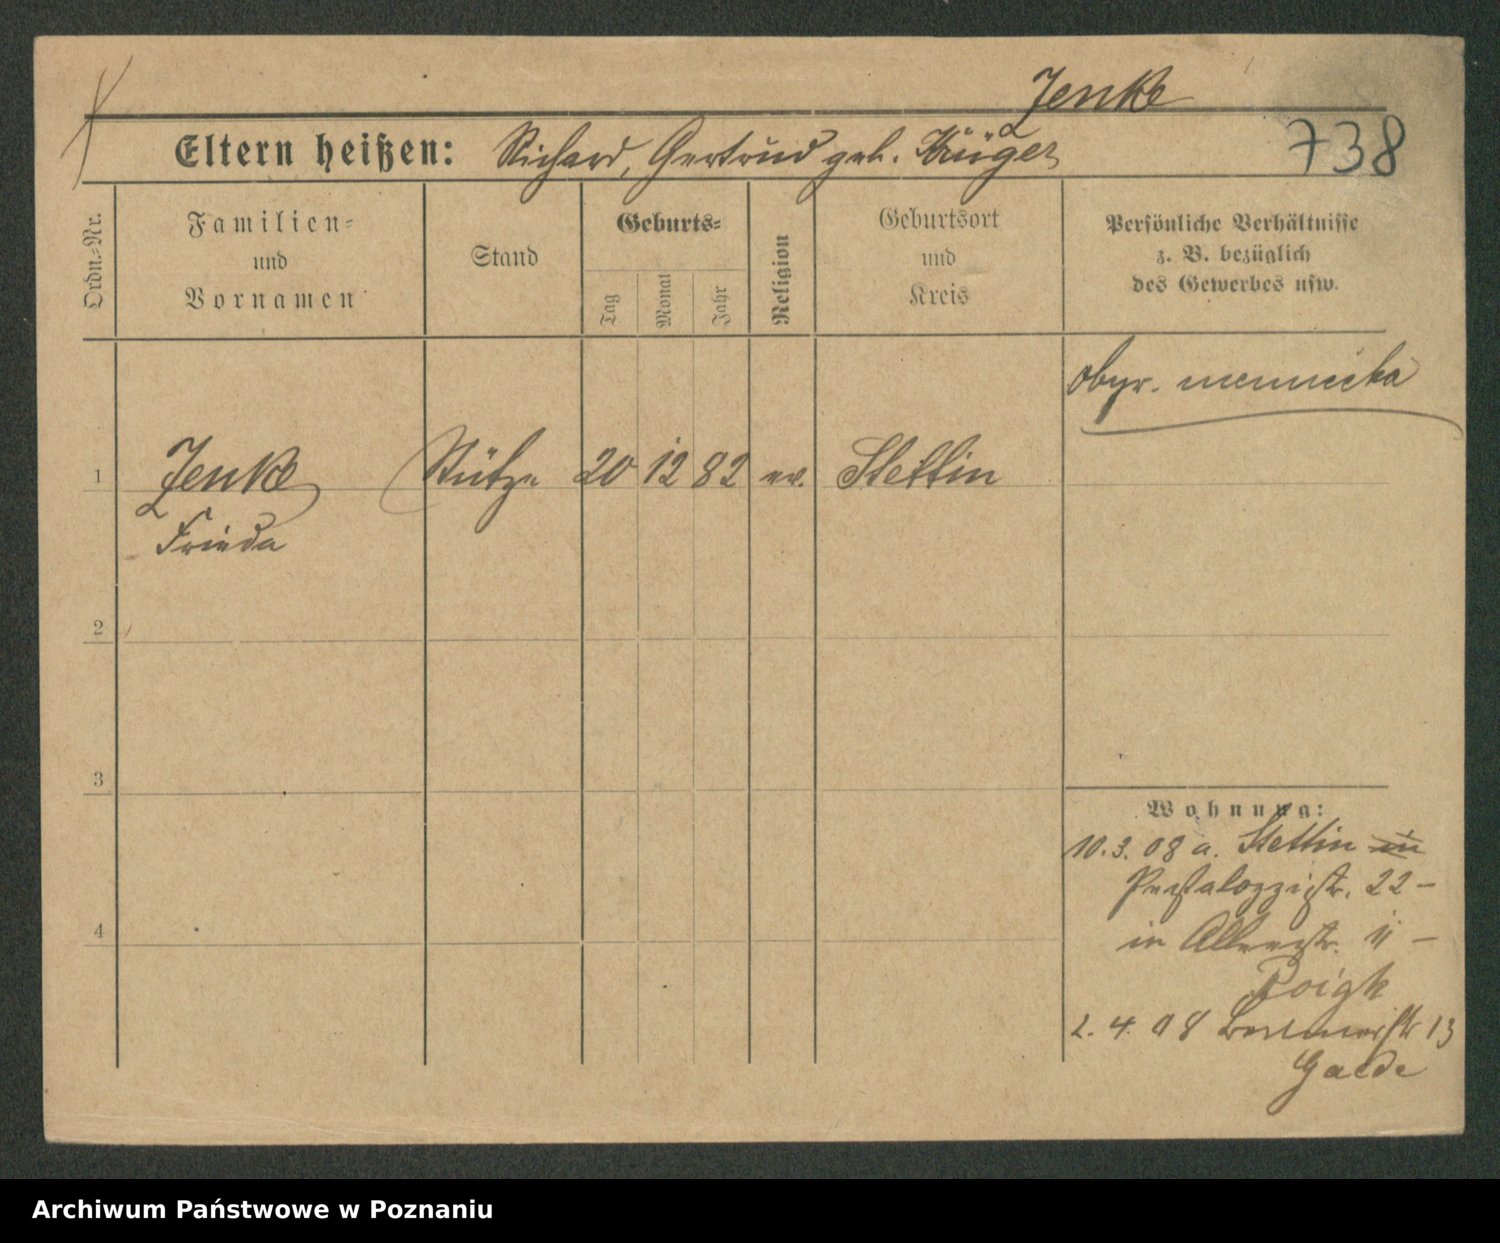 Jenke
Eltern heißen: Richard, Gertrud geb. Krüger
738
Ordn.-Nr.
Familien-
und
Vornamen
Stand
Geburts-
Tag
Monat
Jahr
Religion
Geburtsort
und
Kreis
Persönliche Verhältnisse
z. B. bezüglich
des Gewerbes usw.
obyw. niemiecka
1 Jenke Stütze 20 12 82 ev. Stettin
Frieda
2
3
4
Wohnung:
10.3.08 a. Stettin in
Pestalozzistr. 22 –
in Alleestr. 11 –
Voigt
2.4.08 13
Gaede
Archiwum Państwowe w Poznaniu